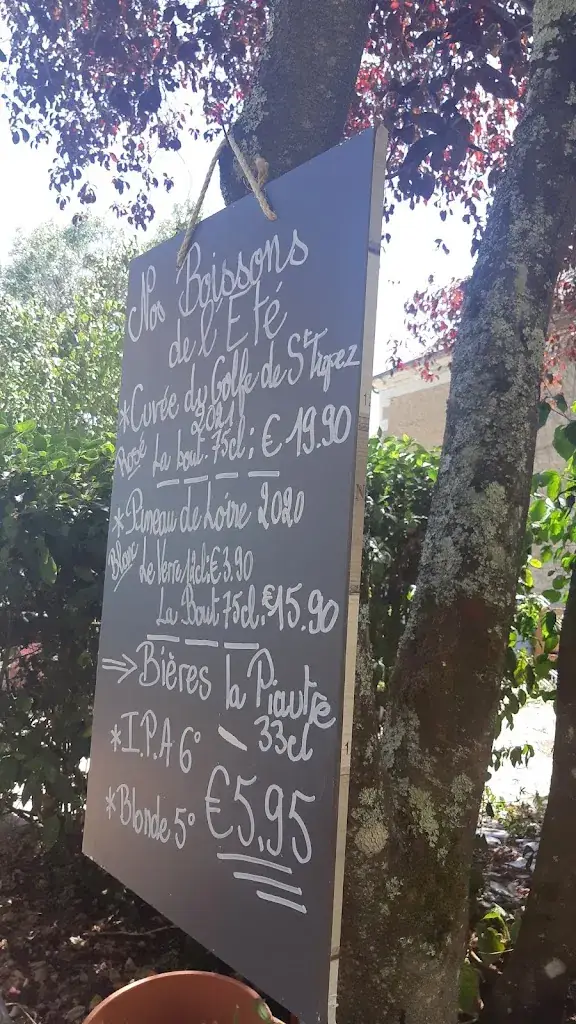 Nos Boissons
de l'Eté
*Cuvée du Golfe de St Tropez
2021
Rosé La bout. 75cl: € 19.90
*Pineau de Loire 2020
Blanc Le Verre 12cl: € 3.90
La Bout 75cl: € 15.90
⇒ Bières la Piautre
33cl
*I.P.A 6°
*Blonde 5° €5,95